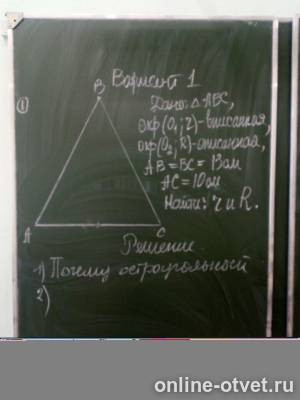 Вариант 1
①
B
Дано: △ABC,
Окр(O₁; r) - вписанная,
Окр(O₂; R) - описанная,
AB = BC = 13см
AC = 10см
Найти: r и R.
A
C
Решение.
1) Почему остроугольный
2)
online-otvet.ru